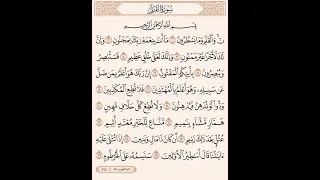 سُورَةُ القَلَمِ
بِسْمِ اللَّهِ الرَّحْمَٰنِ الرَّحِيمِ
نٓ وَالْقَلَمِ وَمَا يَسْطُرُونَ ١ مَا أَنتَ بِنِعْمَةِ رَبِّكَ بِمَجْنُونٍ ٢ وَإِنَّ
لَكَ لَأَجْرًا غَيْرَ مَمْنُونٍ ٣ وَإِنَّكَ لَعَلَىٰ خُلُقٍ عَظِيمٍ ٤ فَسَتُبْصِرُ
وَيُبْصِرُونَ ٥ بِأَييِّكُمُ الْمَفْتُونُ ٦ إِنَّ رَبَّكَ هُوَ أَعْلَمُ بِمَن ضَلَّ
عَن سَبِيلِهِ وَهُوَ أَعْلَمُ بِالْمُهْتَدِينَ ٧ فَلَا تُطِعِ الْمُكَذِّبِينَ ٨
وَدُّوا لَوْ تُدْهِنُ فَيُدْهِنُونَ ٩ وَلَا تُطِعْ كُلَّ حَلَّافٍ مَّهِينٍ ١٠
هَمَّازٍ مَّشَّاءٍ بِنَمِيمٍ ١١ مَّنَّاعٍ لِّلْخَيْرِ مُعْتَدٍ أَثِيمٍ ١٢
عُتُلٍّ بَعْدَ ذَٰلِكَ زَنِيمٍ ١٣ أَن كَانَ ذَا مَالٍ وَبَنِينَ ١٤ إِذَا تُتْلَىٰ عَلَيْهِ
آيَاتُنَا قَالَ أَسَاطِيرُ الْأَوَّلِينَ ١٥ سَنَسِمُهُ عَلَى الْخُرْطُومِ ١٦